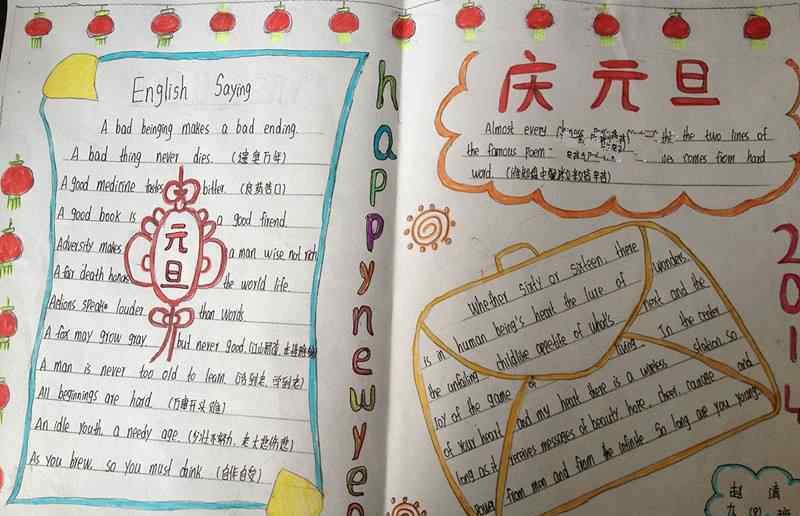 English Saying
A bad beinging makes a bad ending.
A bad thing never dies. (遗臭万年)
A good medicine tastes bitter. (良药苦口)
A good book is a good firend.
Adversity makes a man wise not rich
A fair death honors the world life
Actions speak louder than words
A fox may grow gray but never good.
A man is never too old to learn. (活到老,学到老)
All beginnings are hard. (万事开头难)
An idle youth, a needy age. (少壮不努力,老大徒伤悲)
As you brew, so you must drink. (自作自受)
元旦
happy new yea
庆元旦
Almost every the the two lines of
the famous poem comes from hard
word.
Whether sixty or sixteen, there
is in human being's heart the lure of wonders,
the unfailing childlike appetite of what's next and the
joy of the game of living. In the center
of your heart and my heart there is a wireless station so
long as it receives messages of beauty, hope, cheer, courage and
power from men and from the infinite so long are you young.
2014
赵清
九(8)班